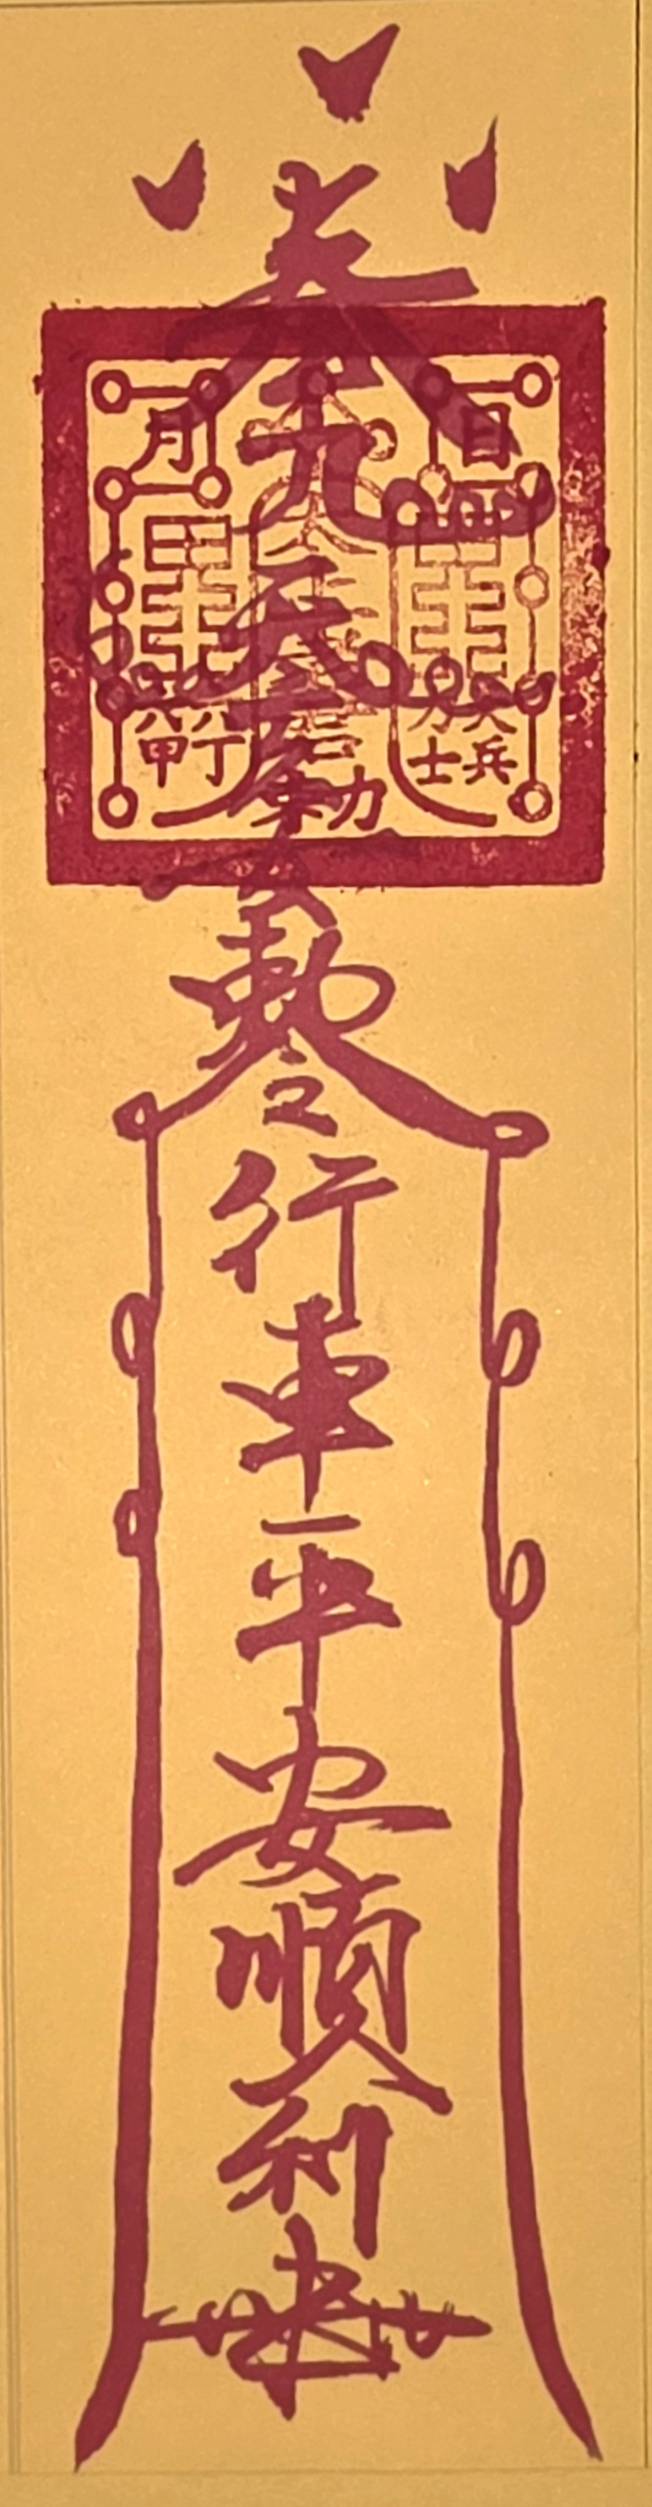 奉
九天
勅令
行車平安順利
月
日
六甲
六丁
力士
天兵
勅